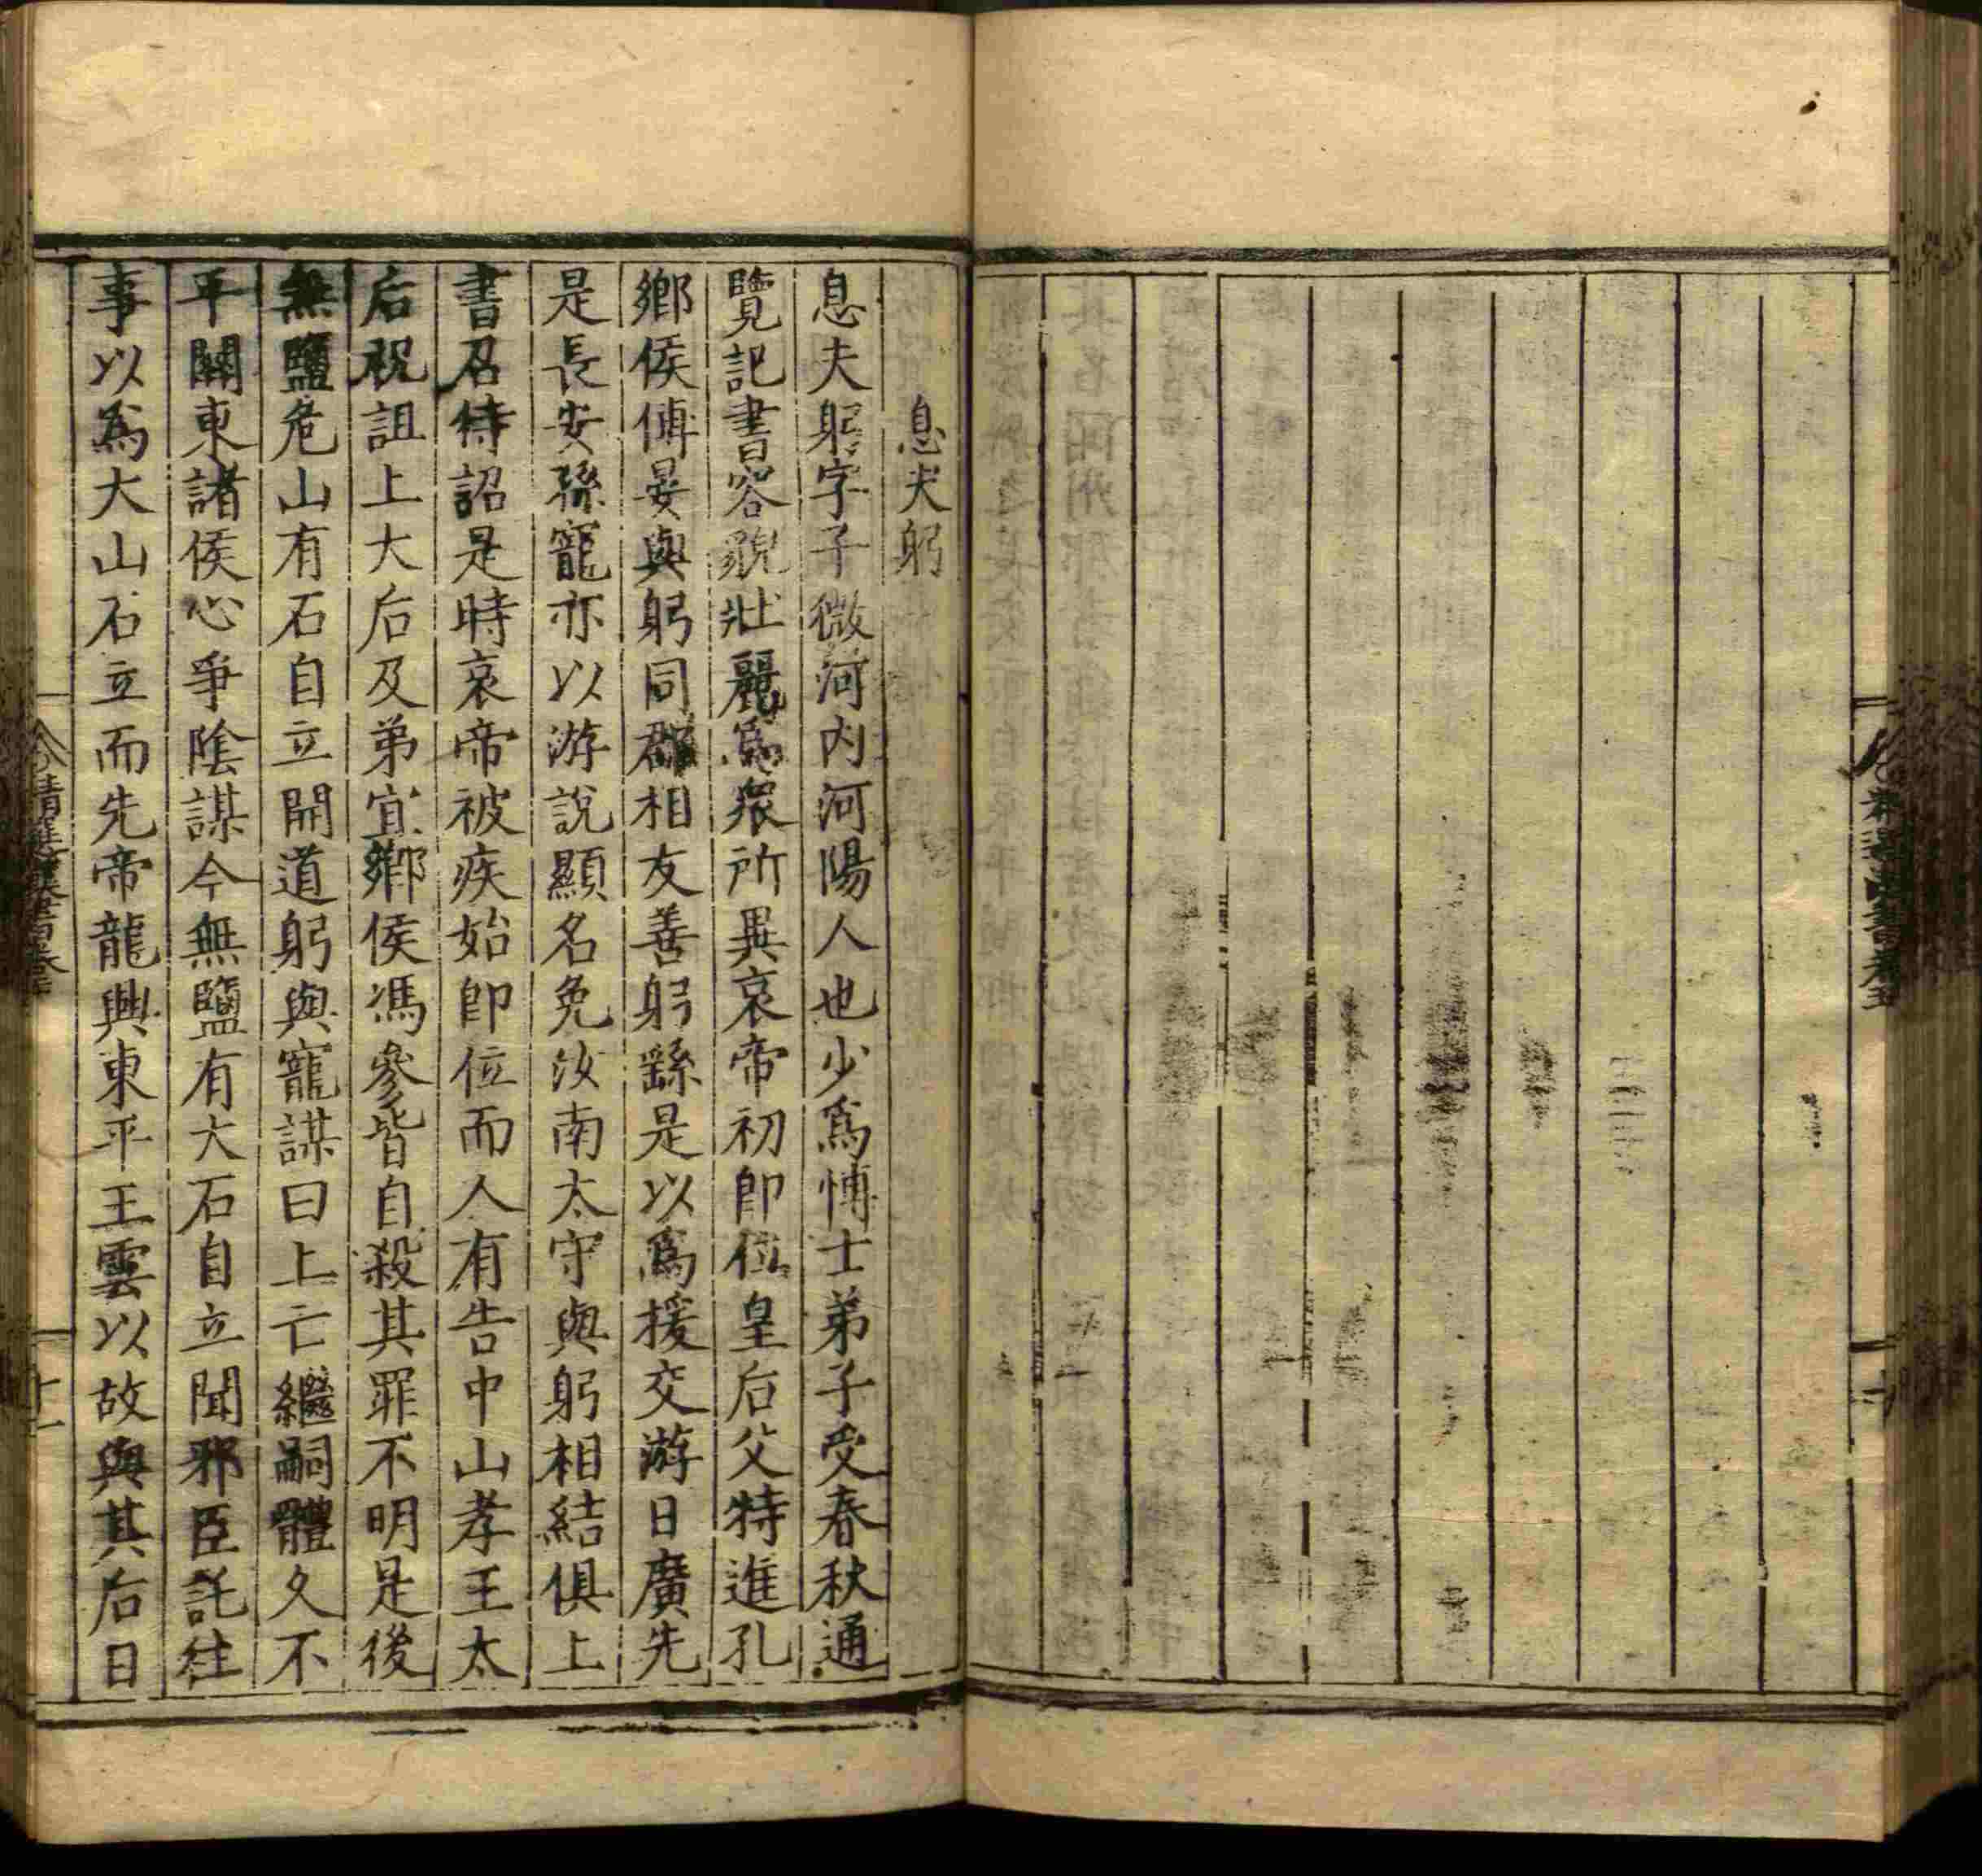 息夫躬
息夫躬字子微河內河陽人也少爲博士弟子受春秋通
覽記書容貌壯麗爲衆所異哀帝初卽位皇后父特進孔
鄉侯傅晏與躬同郡相友善躬繇是以爲援交游日廣先
是長安孫寵亦以游說顯名免汝南太守與躬相結俱上
書召待詔是時哀帝被疾始卽位而人有告中山孝王太
后祝詛上大后及弟宜鄉侯馮參皆自殺其罪不明是後
無鹽危山有石自立開道躬與寵謀曰上亡繼嗣體久不
平關東諸侯心爭陰謀今無鹽有大石自立聞邪臣託往
事以爲大山石立而先帝龍興東平王雲以故與其后日
十一